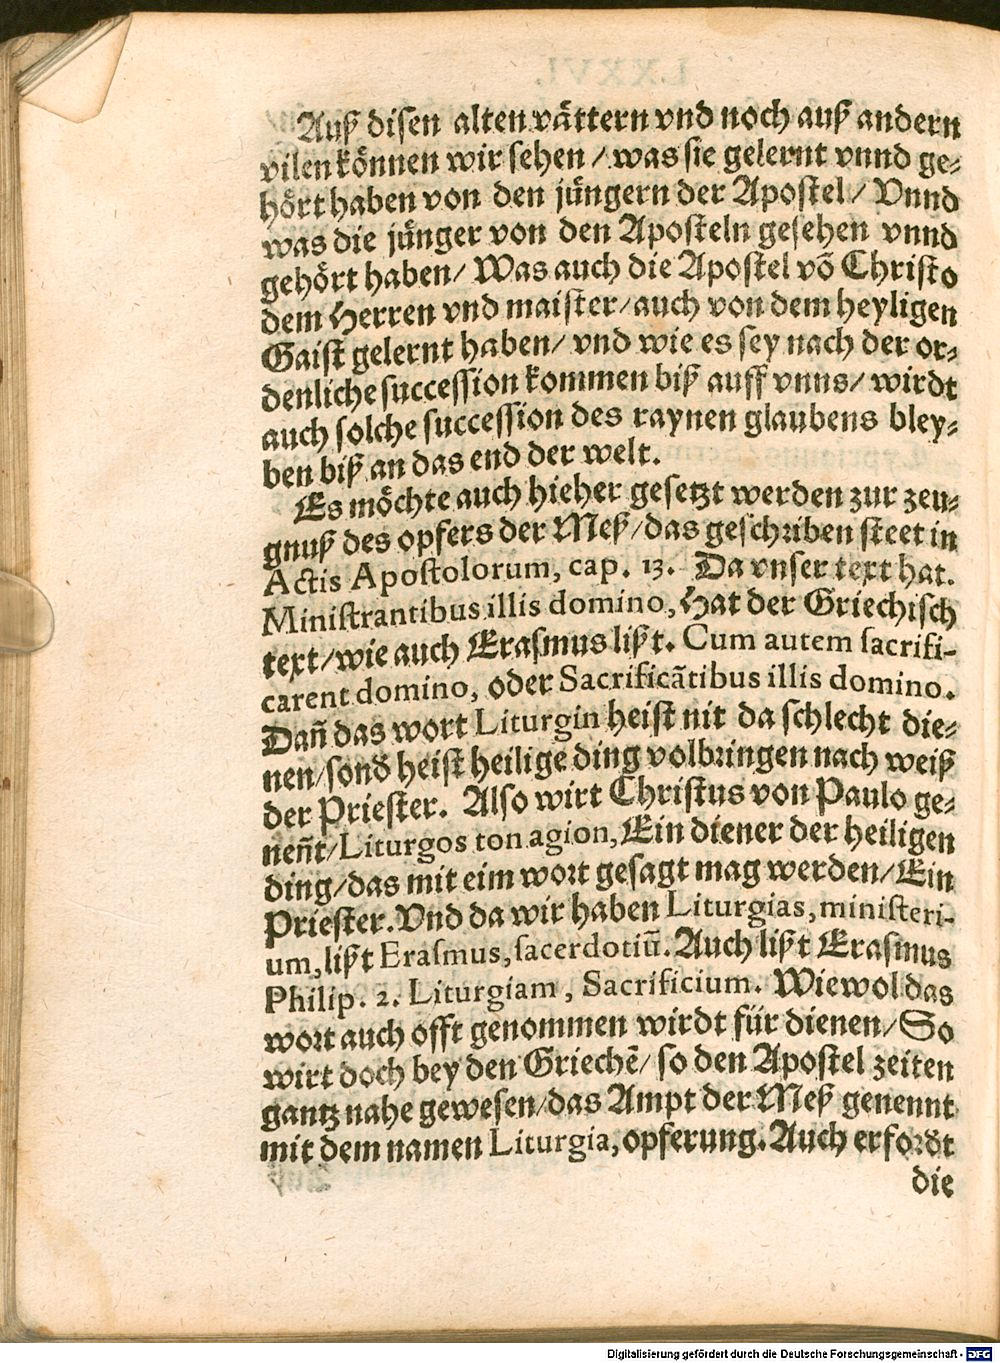 Auß disen alten vättern vnd noch auß andern
vilen können wir sehen / was sie gelernt vnnd ge-
hört haben von den jüngern der Apostel / Vnnd
was die jünger von den Aposteln gesehen vnnd
gehört haben / Was auch die Apostel võ Christo
dem Herren vnd maister / auch von dem heyligen
Gaist gelernt haben / vnd wie es sey nach der or-
denliche succession kommen biß auff vnns / wirdt
auch solche succession des raynen glaubens bley-
ben biß an das end der welt.
Es möchte auch hieher gesetzt werden zur zeu-
gnuß des opfers der Meß / das geschriben steet in
Actis Apostolorum, cap. 13. Da vnser text hat.
Ministrantibus illis domino, Hat der Griechisch
text / wie auch Erasmus lißt. Cum autem sacrifi-
carent domino, oder Sacrificãtibus illis domino.
Dañ das wort Liturgin heist nit da schlecht die-
nen / sond heist heilige ding volbringen nach weiß
der Priester. Also wirt Christus von Paulo ge-
neñt / Liturgos ton agion, Ein diener der heiligen
ding / das mit eim wort gesagt mag werden / Ein
Priester. Vnd da wir haben Liturgias, ministeri-
um, lißt Erasmus, sacerdotiũ. Auch lißt Erasmus
Philip. 2. Liturgiam, Sacrificium. Wiewol das
wort auch offt genommen wirdt für dienen / So
wirt doch bey den Griechẽ / so den Apostel zeiten
gantz nahe gewesen / das Ampt der Meß genennt
mit dem namen Liturgia, opferung. Auch erfordt
die
Digitalisierung gefördert durch die Deutsche Forschungsgemeinschaft - DFG